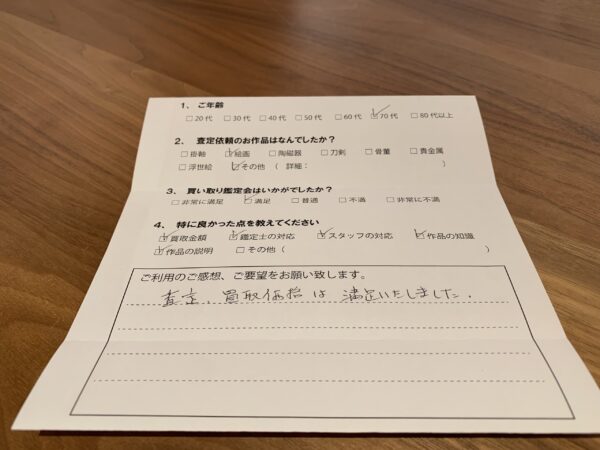 1、 ご年齢
□20代 □30代 □40代 □50代 □60代 ☑70代 □80代以上
2、 査定依頼のお作品はなんでしたか？
□掛軸 ☑絵画 □陶磁器 □刀剣 □骨董 □貴金属
□浮世絵 ☑その他（ 詳細： ）
3、 買い取り鑑定会はいかがでしたか？
□非常に満足 ☑満足 □普通 □不満 □非常に不満
4、 特に良かった点を教えてください
☑買取金額 ☑鑑定士の対応 ☑スタッフの対応 ☑作品の知識
☑作品の説明 □その他（ ）
ご利用のご感想、ご要望をお願い致します。
査定、買取価格は満足いたしました。